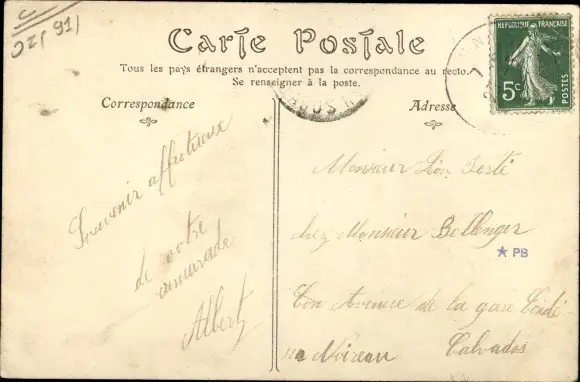 Carte Postale
Tous les pays étrangers n'acceptent pas la correspondance au recto.
Se renseigner à la poste.
Correspondance
Adresse
REPUBLIQUE FRANÇAISE
5c
POSTES
Souvenir affectueux
de votre
camarade
Albert
Monsieur Léon
chez Monsieur Bellenger
PB
Avenue de la gare Condé
Noireau Calvados